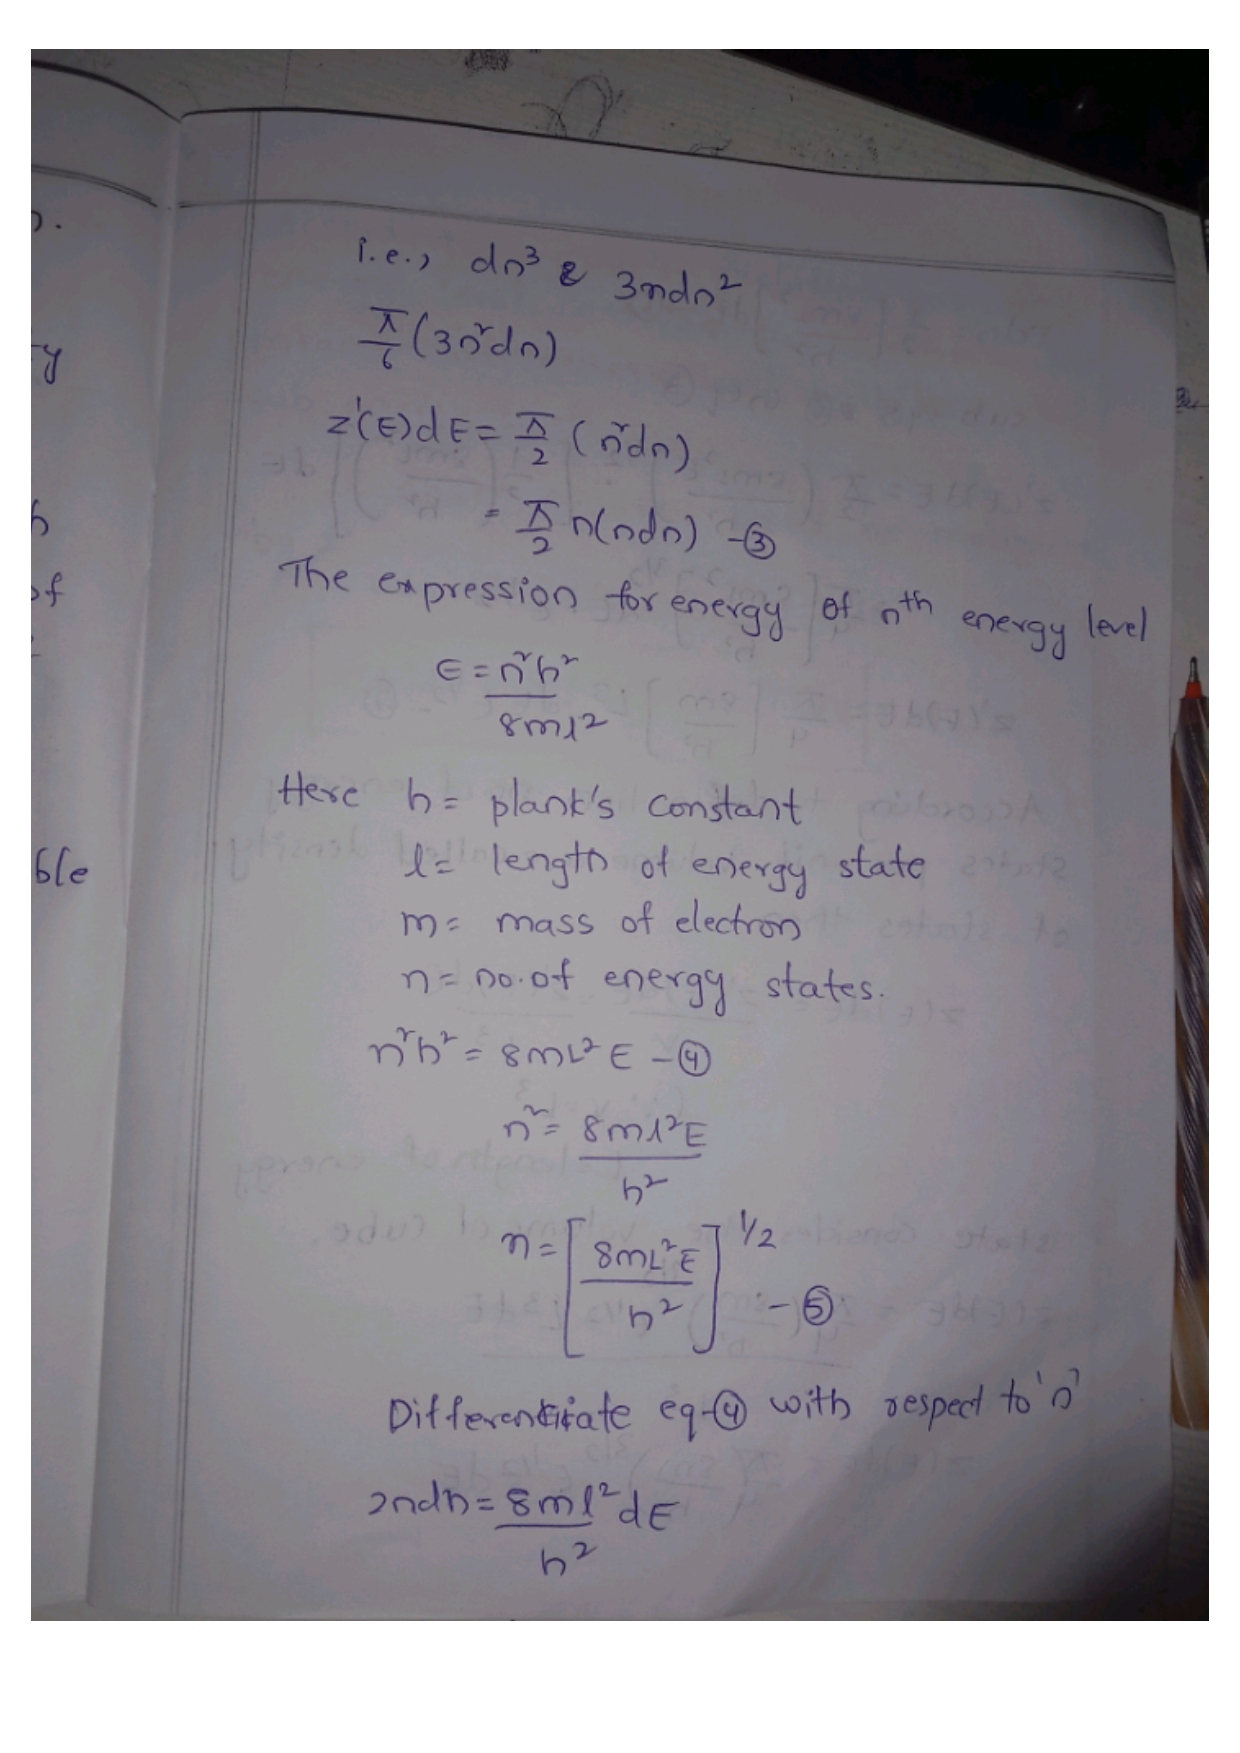 i.e., dn³ & 3ndn²
π/6 (3n²dn)
z'(E)dE = π/2 (n²dn)
= π/2 n(ndn) -③
The expression for energy of nth energy level
E = n²h²/8ml²
Here h = plank's constant
l = length of energy state
m = mass of electron
n = no. of energy states.
n²h² = 8mL²E -④
n² = 8ml²E/h²
n = [8mL²E/h²]^1/2 -⑤
Differentiate eq-④ with respect to 'n'
2ndn = 8ml²/h² dE
y
of
ble